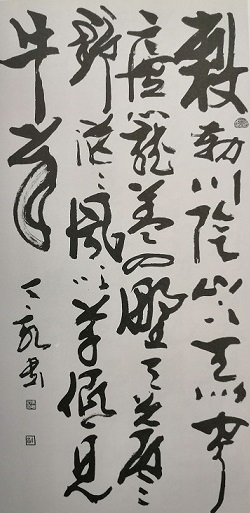 敕勒川陰山下天似穹
廬籠蓋四野天蒼々
野茫々風吹草低見
牛羊
書